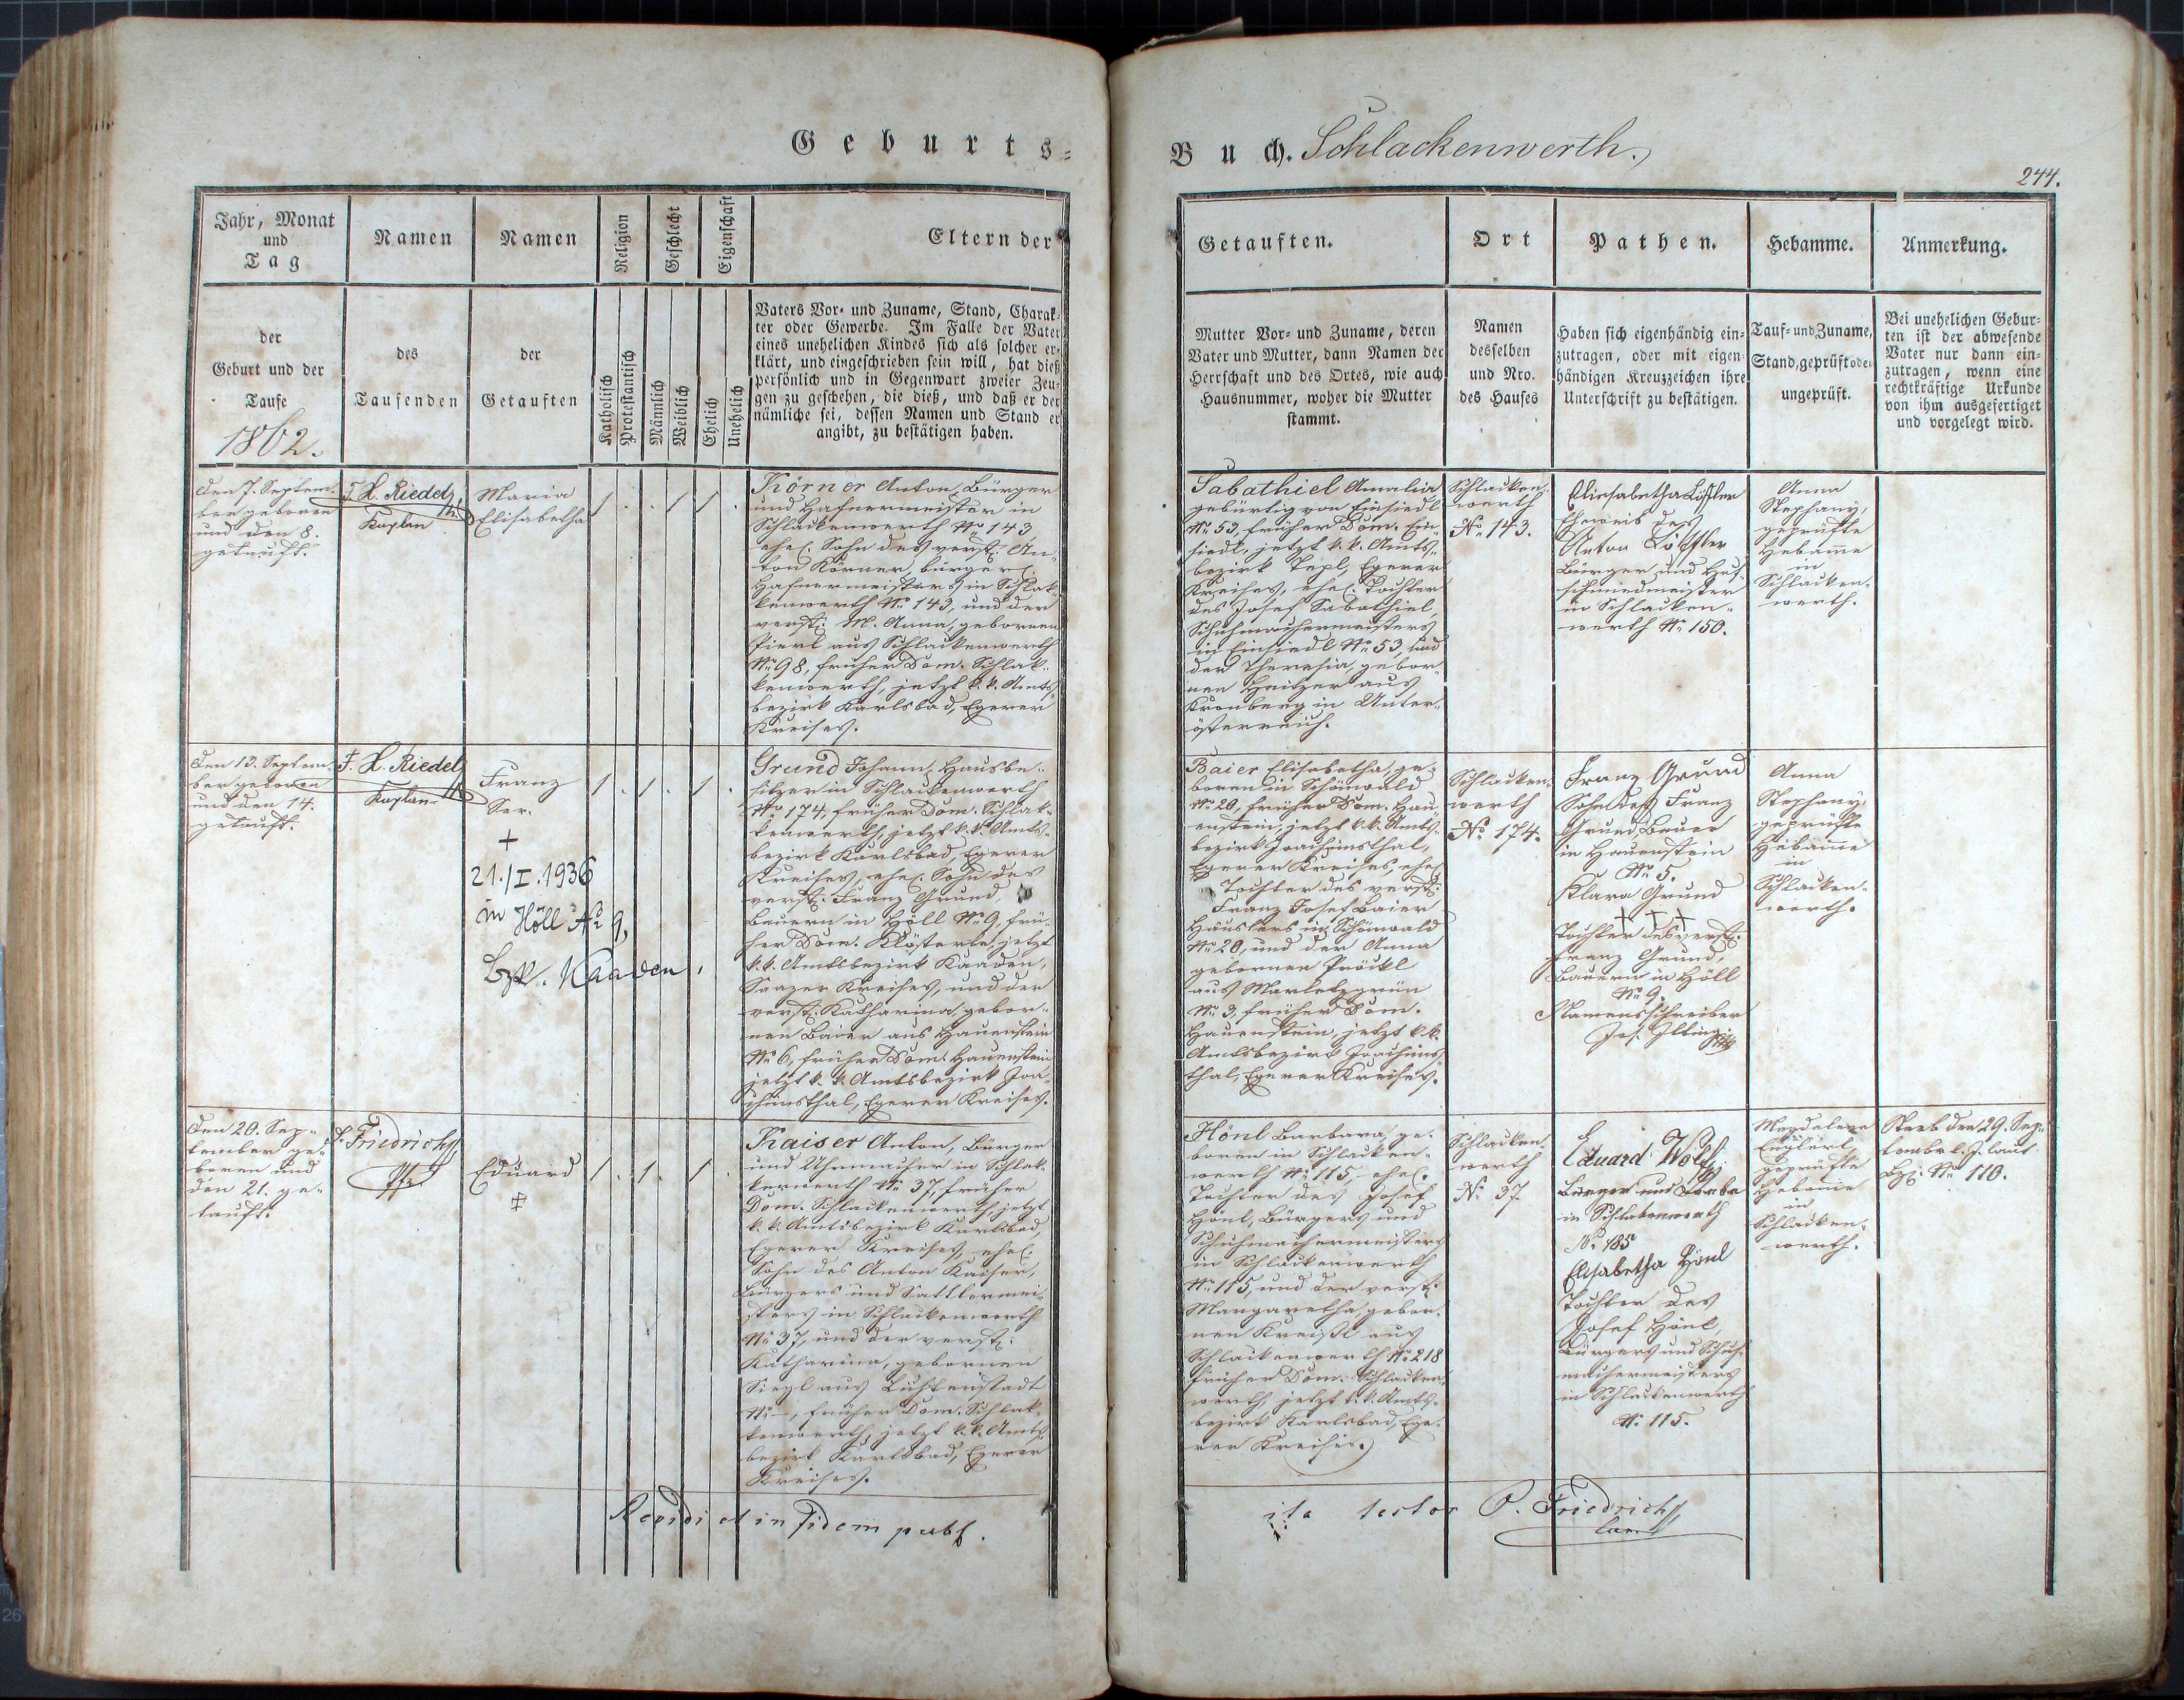 Geburts-
Buch. Schlackenwerth.
244.
Jahr, Monat
und
Tag
der
Geburt und der
Taufe
1862.
Namen
des
Taufenden
Namen
der
Getauften
Religion
Katholisch
Protestantisch
Geschlecht
Männlich
Weiblich
Eigenschaft
Ehelich
Unehelich
Eltern der
Vaters Vor- und Zuname, Stand, Charak-
ter oder Gewerbe. Im Falle der Vater
eines unehelichen Kindes sich als solcher er-
klärt, und eingeschrieben sein will, hat dieß
persönlich und in Gegenwart zweier Zeu-
gen zu geschehen, die dieß, und daß er der
nämliche sei, dessen Namen und Stand er
angibt, zu bestätigen haben.
Getauften.
Mutter Vor- und Zuname, deren
Vater und Mutter, dann Namen der
Herrschaft und des Ortes, wie auch
Hausnummer, woher die Mutter
stammt.
Ort
Namen
desselben
und Nro.
des Hauses
Pathen.
Haben sich eigenhändig ein-
zutragen, oder mit eigen-
händigen Kreuzzeichen ihre
Unterschrift zu bestätigen.
Hebamme.
Tauf- und Zuname,
Stand, geprüft oder
ungeprüft.
Anmerkung.
Bei unehelichen Gebur-
ten ist der abwesende
Vater nur dann ein-
zutragen, wenn eine
rechtkräftige Urkunde
von ihm ausgefertiget
und vorgelegt wird.
Den 7. Septem-
ber geboren
und den 8.
getauft.
F. X. Riedel
Kaplan
Maria
Elisabetha
Körner Anton, Bürger
und Hafnermeister in
Schlackenwerth No 143
ehel. Sohn des verst. An-
ton Körner, bürgerl.
Hafnermeisters in Schlak-
kenwerth No 143, und der
verst. M. Anna, gebornen
Pierl aus Schlackenwerth
No 98, früher Dom. Schlak-
kenwerth, jetzt k. k. Amts-
bezirk Karlsbad, Egerer
Kreises.
Sabathiel Amalia
gebürtig von Einsiedl
No 53, früher Dom. Ein-
siedl, jetzt k. k. Amts-
bezirk Tepl, Egerer
Kreises, ehel. Tochter
des Josef Sabathiel,
Schuhmachermeisters
in Einsiedl No 53, und
der Theresia, gebor-
nen Haitzer aus
Kronberg in Unter-
österreich.
Schlacken-
werth
No 143.
Elisabetha Löffler
Eheweib des
Anton Löffler
Bürger und Huf-
schmiedmeister
in Schlacken-
werth No 150.
Anna
Stephany,
geprüfte
Hebamme
in
Schlacken-
werth.
Den 13. Septem-
ber geboren
und den 14.
getauft.
F. X. Riedel
Kaplan
Franz
Ser.
+
21./I.1936
in Höll No 9,
Bzk. Kaaden
Grund Johann, Hausbe-
sitzer in Schlackenwerth
No 174, früher Dom. Schlak-
kenwerth, jetzt k. k. Amts-
bezirk Karlsbad, Egerer
Kreises, ehel. Sohn des
verst. Franz Grund,
Bauern in Höll No 9, frü-
her Dom. Klösterle, jetzt
k. k. Amtsbezirk Kaaden,
Saazer Kreises, und der
verst. Katharina, gebor-
nen Baier aus Hauenstein
No 6, früher Dom. Hauenstein
jetzt k. k. Amtsbezirk Joa-
chimsthal, Egerer Kreises.
Baier Elisabetha, ge-
boren in Schönwald
No 20, früher Dom. Hau-
enstein, jetzt k. k. Amts-
bezirk Joachimsthal,
Egerer Kreises, ehel.
Tochter des verst.
Franz Josef Baier
Häuslers in Schönwald
No 20, und der Anna
gebornen Pröckl
aus Marletzgrün
No 3, früher Dom.
Hauenstein, jetzt k. k.
Amtsbezirk Joachims-
thal, Egerer Kreises.
Schlacken-
werth
No 174.
Franz Grund
Sohn des Franz
Grund Bauer
in Hauenstein
No 5.
Klara Grund
+++
Tochter des verst.
Franz Grund,
Bauern in Höll
No 9
Namensschreiber
Jos. Illing
Anna
Stephany,
geprüfte
Hebamme
in
Schlacken-
werth.
Den 20. Sep-
tember ge-
boren und
den 21. ge-
tauft.
P. Friedrich
Eduard
Kaiser Anton, Bürger
und Uhrmacher in Schlak-
kenwerth No 37, früher
Dom. Schlackenwerth, jetzt
k. k. Amtsbezirk Karlsbad,
Egerer Kreises, ehel.
Sohn des Anton Kaiser,
Bürgers und Sattlermei-
sters in Schlackenwerth
No 37, und der verst.
Katharina, gebornen
Siegl aus Lichtenstadt
No —, früher Dom. Schlak-
kenwerth, jetzt k. k. Amts-
bezirk Karlsbad, Egerer
Kreises.
Hönl Barbara, ge-
boren in Schlacken-
werth No 115, ehel.
Tochter des Josef
Hönl, Bürgers und
Schuhmachermeisters
in Schlackenwerth
No 115, und der verst.
Margaretha, gebor-
nen Kreißl aus
Schlackenwerth No 218
früher Dom. Schlacken-
werth, jetzt k. k. Amts-
bezirk Karlsbad, Ege-
rer Kreises.
Schlacken-
werth
No 37
Eduard Wolf
Bürger und
in Schlakenwerth
No 185
Elisabetha Hönl
Tochter des
Josef Hönl,
Bürgers und Schuh-
machermeisters
in Schlackenwerth
No 115.
Magdalena
Englert
geprüfte
Hebamme
in
Schlacken-
werth.
Starb den 29. Sep-
tember l. J. laut
No 110.
Revidi et in fidem publ.
ita testor P. Friedrich